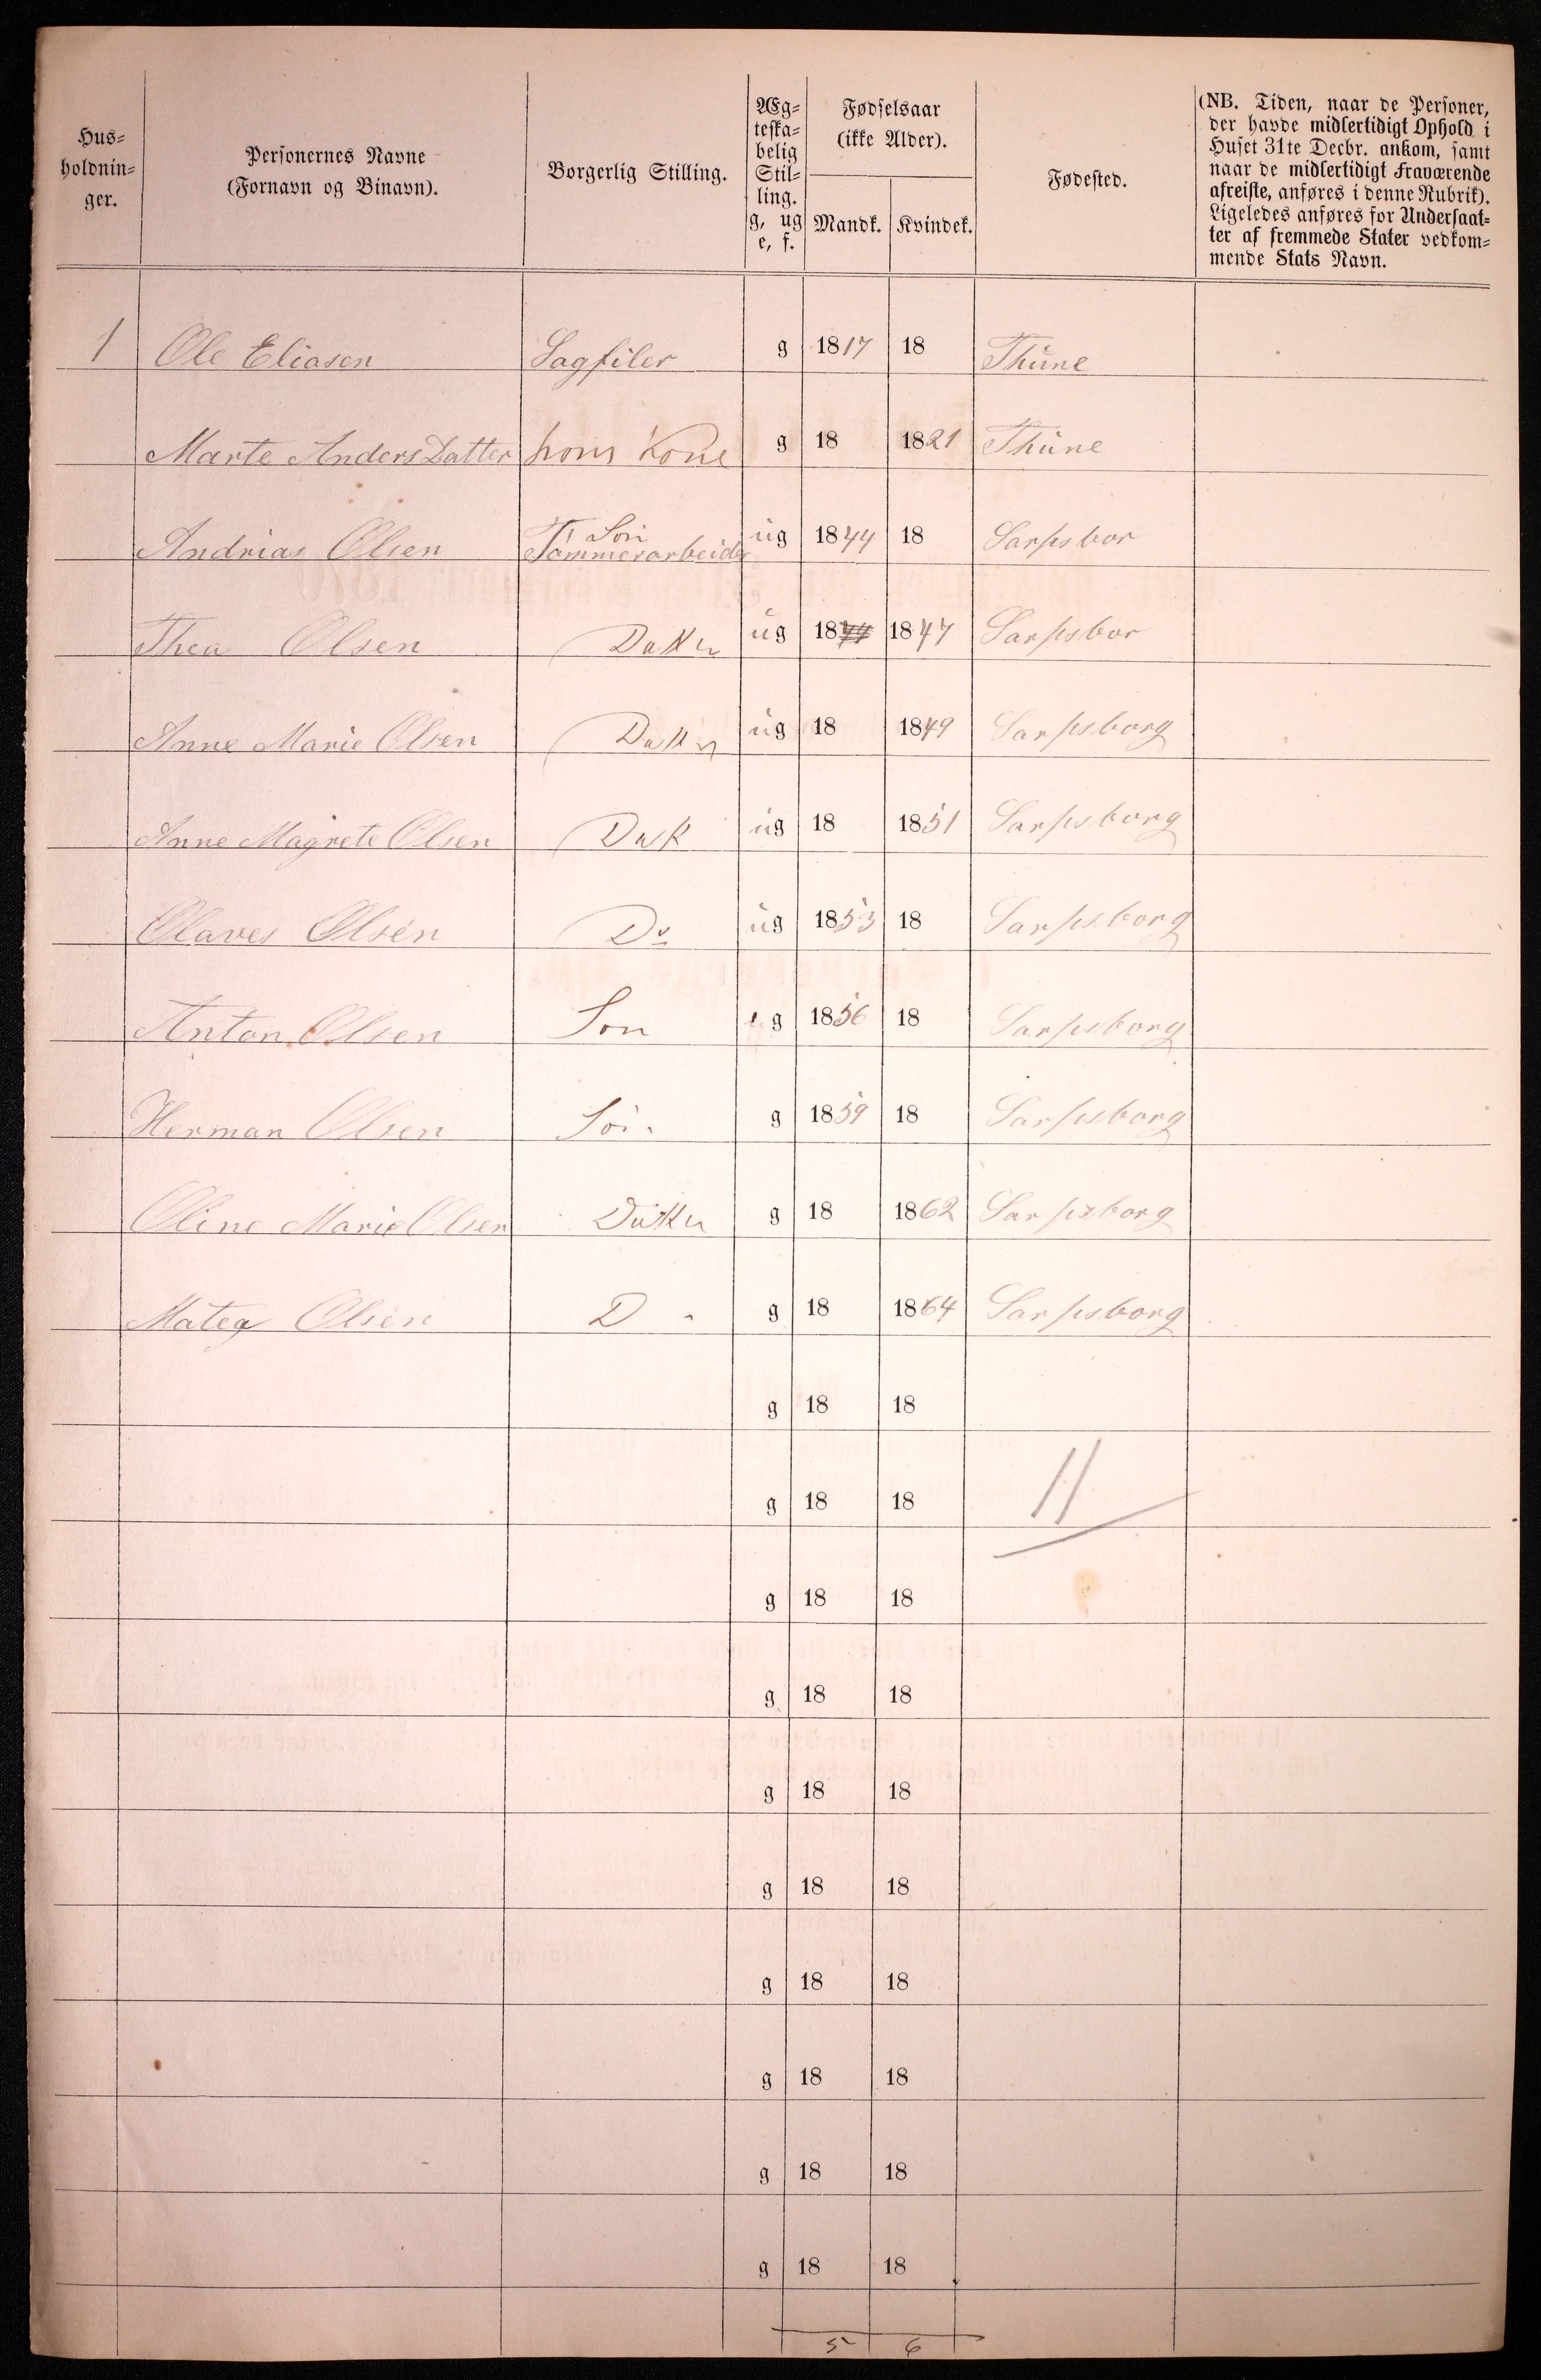 Hus-
holdnin-
ger.
Personernes Navne
(Fornavn og Binavn).
Borgerlig Stilling.
Æg-
teska-
belig
Stil-
ling.
g, ug
e, f.
Fødselsaar
(ikke Alder).
Mandk. Kvindek.
Fødested.
(NB. Tiden, naar de Personer,
der havde midlertidigt Ophold i
Huset 31te Decbr. ankom, samt
naar de midlertidigt Fraværende
afreiste, anføres i denne Rubrik).
Ligeledes anføres for Undersaat-
ter af fremmede Stater vedkom-
mende Stats Navn.
1 Ole Eliasen Sagfiler g 1817 18 Thune
Marte Anders Datter hans Kone g 18 1821 Thune
Søn
Andrias Olsen Tømmerarbeider ug 1844 18 Sarpsbor
Thea Olsen Datter ug 1844 1847 Sarpsbor
Anne Marie Olsen Datter ug 18 1849 Sarpsborg
Anne Magrete Olsen Datt ug 18 1851 Sarpsborg
Olaves Olsen Do ug 1853 18 Sarpsborg
Anton Olsen Søn g 1856 18 Sarpsborg
Herman Olsen g 1859 18 Sarpsborg
Oline Marie Olsen Datter g 18 1862 Sarpsborg
Matea Olsen D g 18 1864 Sarpsborg
g 18 18
g 18 18 11
g 18 18
g 18 18
g 18 18
g 18 18
g 18 18
g 18 18
g 18 18
g 18 18
5 6